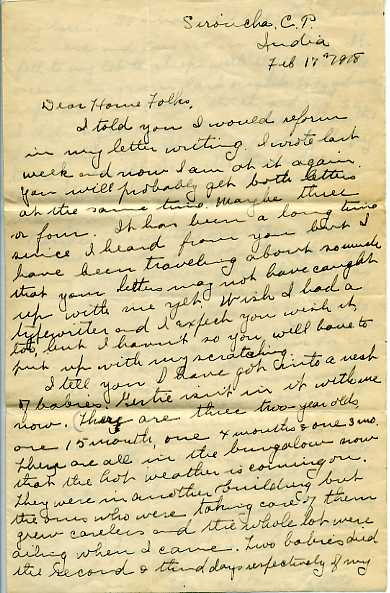 Sironcha, C.P.
India
Feb 17th 1918
Dear Home Folks,
I told you I would reform
in my letter writing. I wrote last
week and now I am at it again.
You will probably get both letters
at the same time. Maybe three
or four. It has been a long time
since I heard from you but I
have been traveling about so much
that your letters may not have caught
up with me yet. Wish I had a
typewriter and I expect you wish it
too, but I havn't so you will have to
put up with my scratching.
I tell you I have got into a nest
of babies. Gertie isn't in it with me
now. There are three two-year olds,
one 15 month, one 4 months & one 3 mo.
They are all in the bungalow now
that the hot weather is coming on.
They were in another building but
the ones who were taking care of them
grew careless and the whole lot were
ailing when I came. Two babies died
the second & third days respectively of my